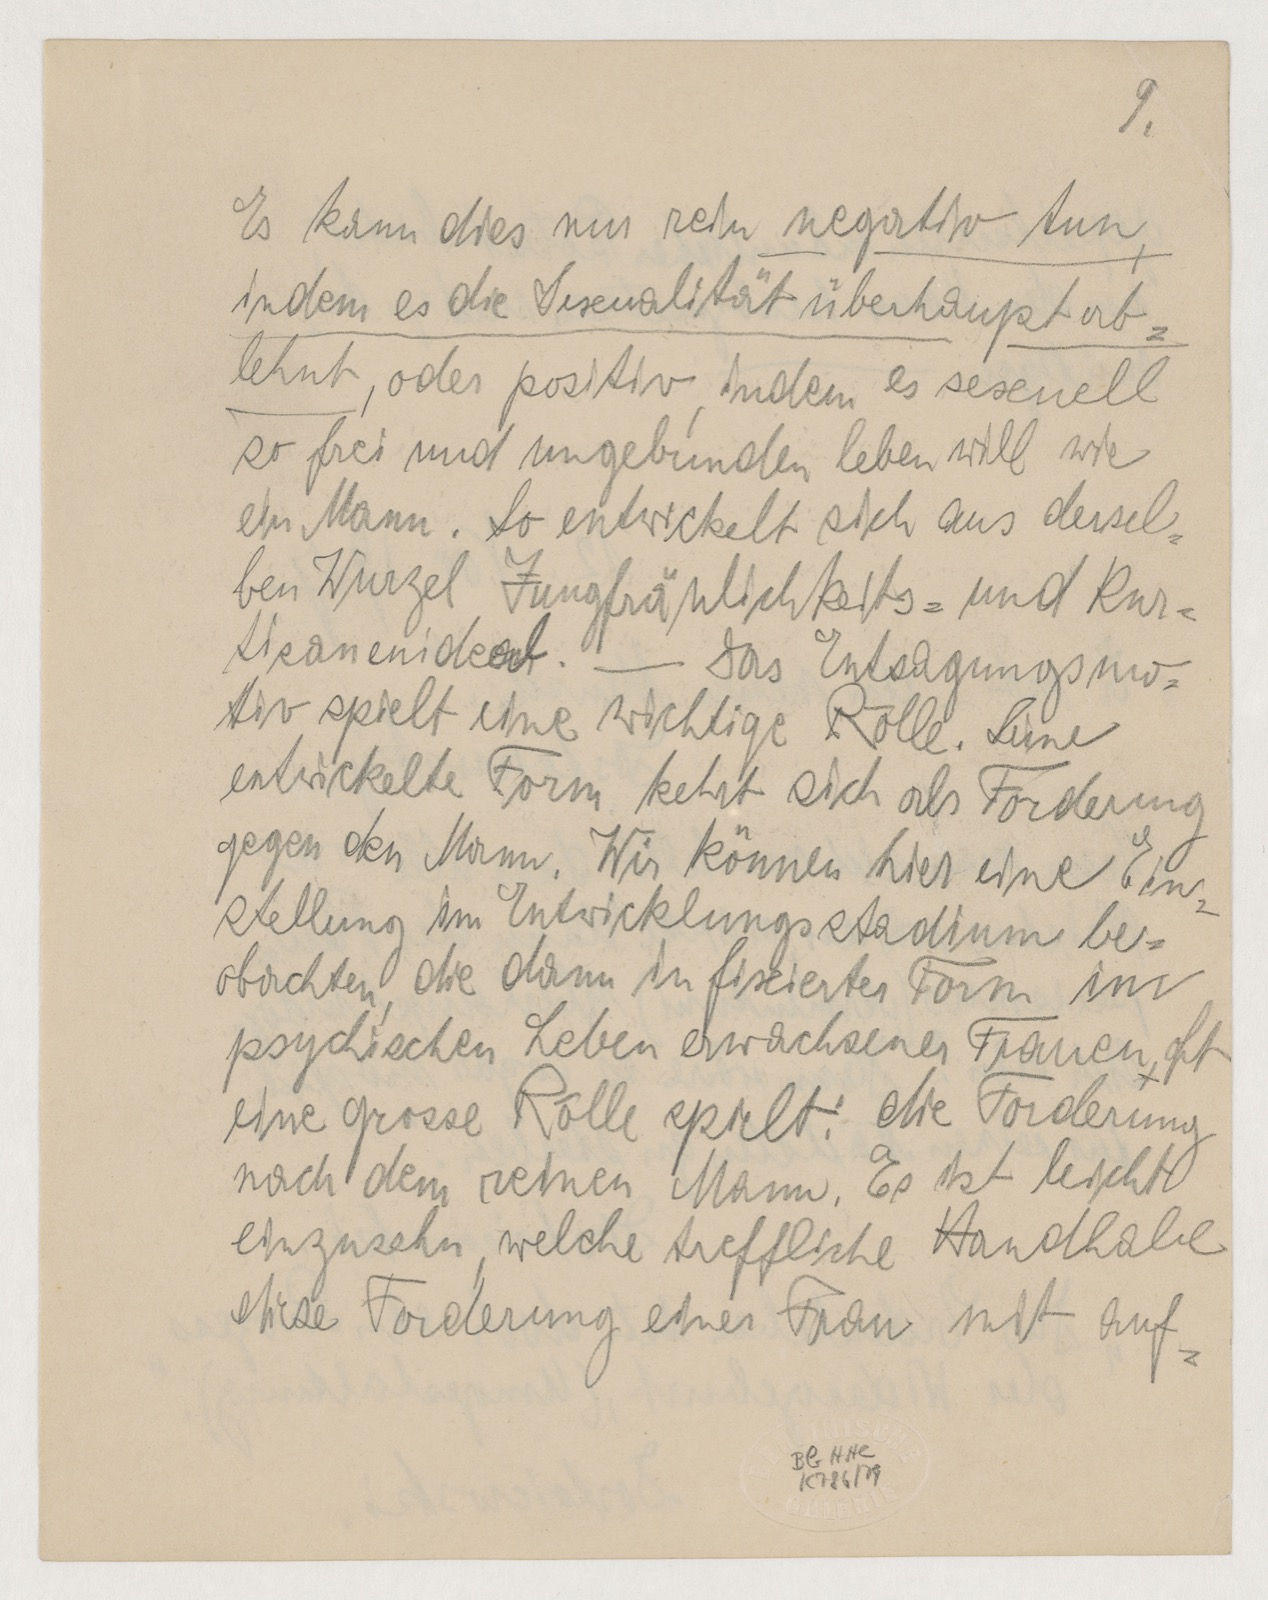 9.
Es kann dies nur rein negativ tun,
indem es die Sexualität überhaupt ab=
lehnt, oder positiv, indem es sexuell
so frei und ungebunden leben will wie
ein Mann. So entwickelt sich aus dersel=
ben Wurzel Jungfräulichkeits= und Kur=
tisanenideal. — Das Entsagungsmo=
tiv spielt eine wichtige Rolle. Seine
entwickelte Form kehrt sich als Forderung
gegen den Mann. Wir können hier eine Ein=
stellung im Entwicklungsstadium be=
obachten, die dann in fixierter Form im
psychischen Leben erwachsener Frauen oft
eine grosse Rolle spielt: die Forderung
nach dem reinen Mann. Es ist leicht
einzusehn, welche treffliche Handhabe
diese Forderung einer Frau mit auf=
BG HHC
K786/79